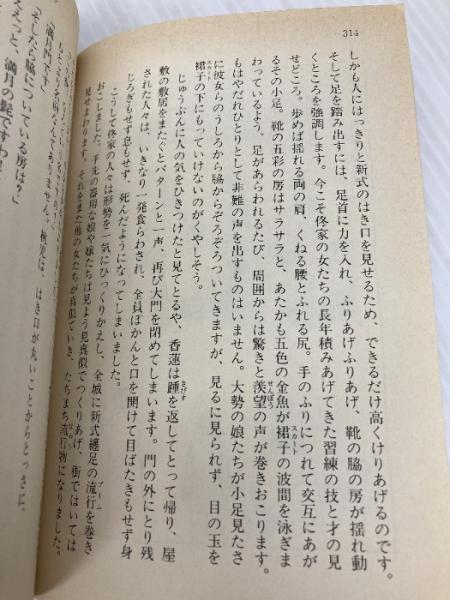 314
しかも人にはっきりと新式のはき口を見せるため、できるだけ高くけりあげるのです。
そして足を踏み出すには、足首に力を入れ、ふりあげふりあげ、靴の脇の房が揺れ動
くところを強調します。今こそ佟家の女たちの長年積みあげてきた習練の技と才の見
せどころ。歩めば揺れる両の肩、くねる腰とふれる尻。手のふりにつれて交互にあが
るその小足。靴の五彩の房はサラサラと、あたかも五色の金魚が裙子の波間を泳ぎま
スカート
わっているよう、足があらわれるたび、周囲からは驚きと羨望の声が巻きおこります。
せんぼう
もはやだれひとりとして非難の声を出すものはいません。大勢の娘たちが小足見たさ
に彼女らのうしろから脇からぞろぞろついてきますが、見るに見られず、目の玉を
裙子の下にもっていけないのがくやしそう。
スカート
じゅうぶんに人の気をひきつけたと見てとるや、香蓮は踵を返してとって帰り、屋
きびす
敷の敷居をまたぐとバターンと一声、再び大門を閉めてしまいます。門の外にとり残
された人々は、いきなり一発食らわされ、全員ぽかんと口を開けて目ばたきもせず身
じろぎもせず息もせず、死んだようになってしまいました。
こうして佟家の人々は形勢を一気にひっくりかえし、全城に新式纏足の流行を巻き
ブーム
おこしました。手先の器用な娘や嫁たちは見よう見真似でつくりあげ、街ではいては
見せまわります。それをまた他の女たちが真似ていき、たちまち流行物になりました。
はき口が丸いことからとっさに、
「満月門です」
「そんなら脇についている房は？」